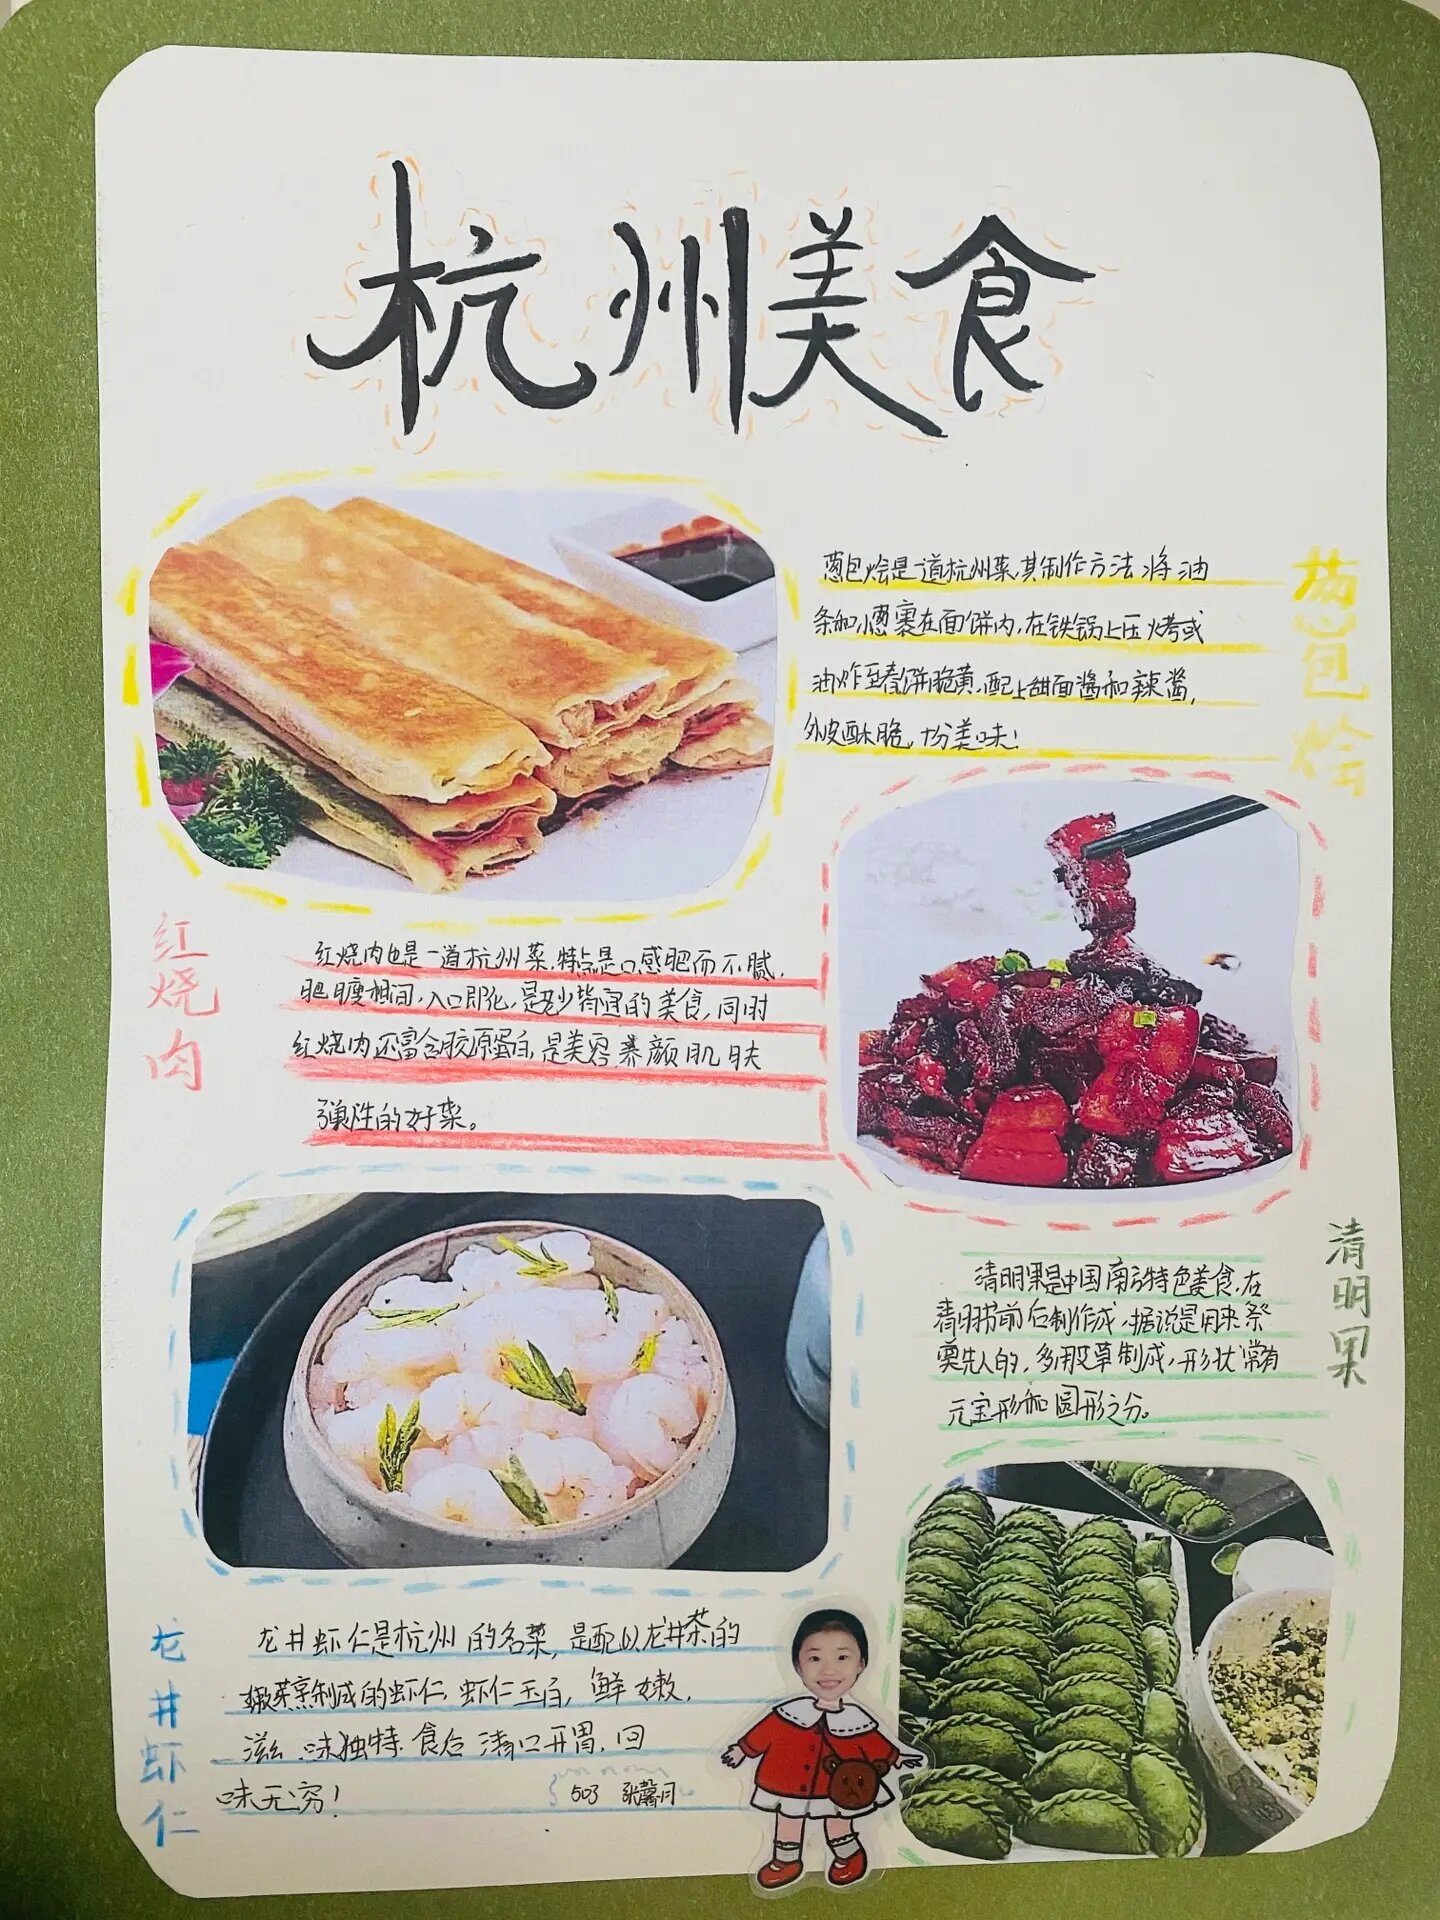 杭州美食
葱包烩
葱包烩是一道杭州菜,其制作方法将油
条和小葱裹在面饼内,在铁锅上压烤或
油炸至春饼脆黄,配上甜面酱和辣酱,
外皮酥脆,十分美味!
红烧肉
红烧肉也是一道杭州菜,特点是口感肥而不腻,
肥瘦相间,入口即化,是老少皆宜的美食,同时
红烧肉还富含胶原蛋白,是美容养颜肌肤
弹性的好菜。
清明果
清明果是中国南方特色美食,在
清明节前后制作成,据说是用来祭
奠先人的,多用艾草制成,形状常有
元宝形和圆形之分。
龙井虾仁
龙井虾仁是杭州的名菜,是配以龙井茶的
嫩芽烹制成的虾仁,虾仁玉白,鲜嫩,
滋味独特,食后清口开胃,回
味无穷!
503 张馨月